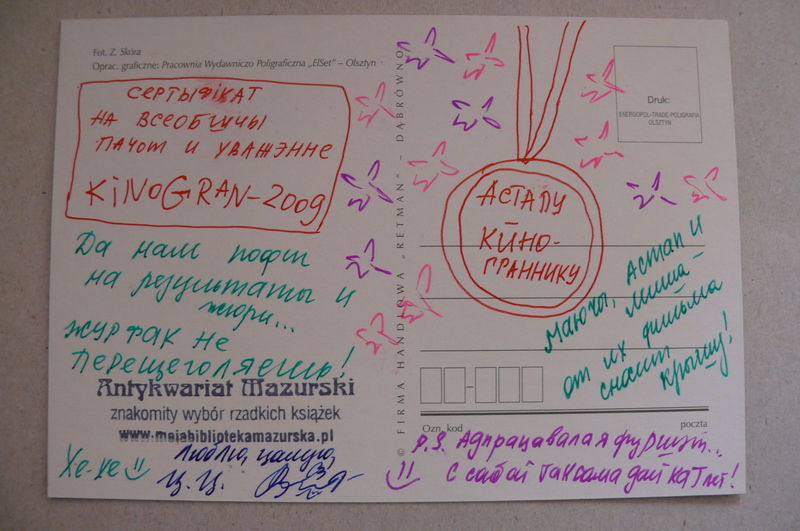 Fot. Z. Skóra
Oprac. graficzne: Pracownia Wydawniczo Poligraficzna „ElSet" – Olsztyn
СЕРТЫФІКАТ
НА ВСЕОБЩЧЫ
ПАЧОТ И УВАЖЭННЕ
KINOGRAN-2009
Да нам пофиг
на результаты и
жюри...
ЖУРФАК НЕ
ПЕРЕЩЕГОЛЯЕШЬ!
Antykwariat Mazurski
znakomity wybór rzadkich książek
www.mojabibliotekamazurska.pl
Хе-хе
Люблю, целую,
Ц. Ц.
© FIRMA HANDLOWA „RETMAN" – DĄBRÓWNO
Druk:
ENERGOPOL-TRADE-POLIGRAFIA
OLSZTYN
АСТАПУ
КИНО-
ГРАННИКУ
Маючы, Астап и
Миша -
от их фильма
сносит
крышу!
Ozn. kod
poczta
P.S. Адпрацавала я фуршэт...
С сабой танкама дай катлет!